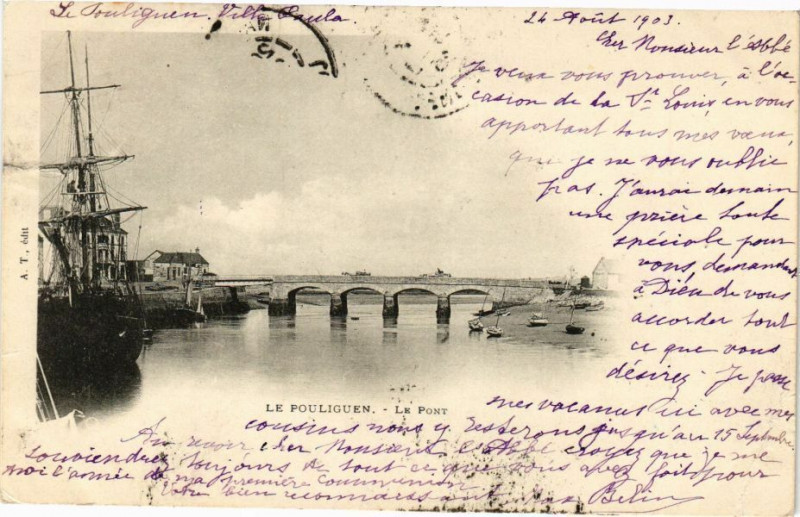 Le Pouliguen. Villa Paula.
24 Août 1903.
Cher Monsieur l'Abbé
Je veux vous prouver, à l'oc-
casion de la St Louis, en vous
apportant tous mes vœux,
que je ne vous oublie
pas. J'aurai demain
une prière toute
spéciale pour
vous, demandant
à Dieu de vous
accorder tout
ce que vous
désirez. Je passe
mes vacances ici avec mes
cousins nous y resterons jusqu'au 15 Septembre.
Au revoir cher Monsieur l'Abbé croyez que je me
souviendrai toujours de tout ce que vous avez fait pour
moi l'année de ma première Communion
Votre bien reconnaissant Belin
A. T., édit
LE POULIGUEN. - LE PONT